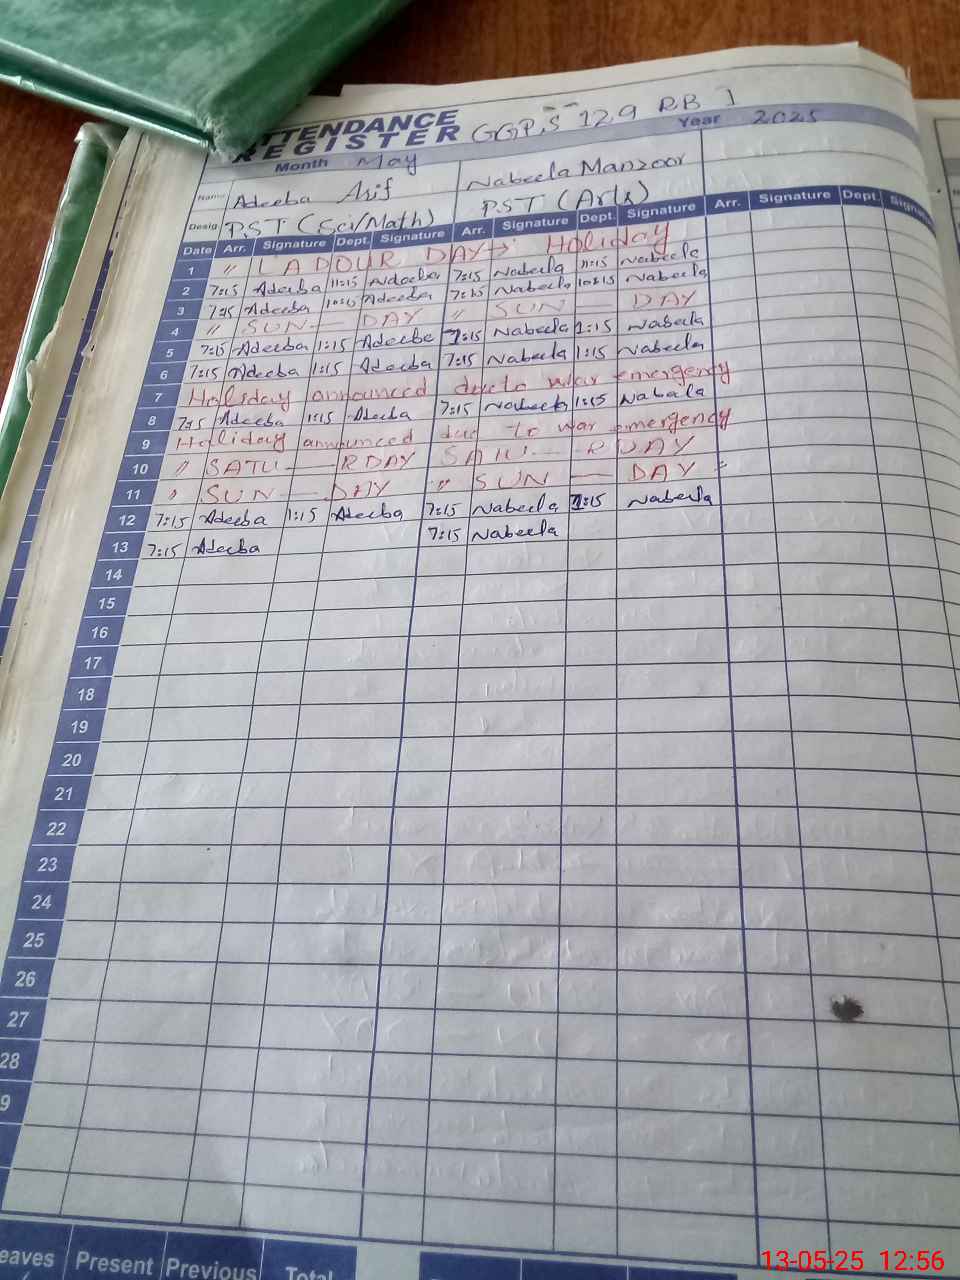 ATTENDANCE
REGISTER GGP.S 129 RB 1
Month May Year 2025
Name Adeeba Asif Nabeela Manzoor
Desig PST (Sci/Math) PST (Arts)
Date Arr. Signature Dept. Signature Arr. Signature Dept. Signature Arr. Signature Dept. Signature
1 " LABOUR DAY → Holiday
2 7:15 Adeeba 11:15 Adeeba 7:15 Nabeela 11:15 Nabeela
3 7:15 Adeeba Adeeba 7:15 Nabeela Nabeela
4 " SUN — DAY " SUN — DAY
5 7:15 Adeeba 1:15 Adeebe 7:15 Nabeela 1:15 Nabeela
6 7:15 Adeeba 1:15 Adeeba 7:15 Nabeela 1:15 Nabeela
7 Holiday announced due to war emergency
8 7:15 Adeeba 1:15 Adeeba 7:15 Nabeela 1:15 Nabeela
9 Holiday announced due to war emergency
10 " SATU — RDAY SATU — RDAY
11 " SUN — DAY " SUN — DAY "
12 7:15 Adeeba 1:15 Adeeba 7:15 Nabeela 1:15 Nabeela
13 7:15 Adeeba 7:15 Nabeela
14
15
16
17
18
19
20
21
22
23
24
25
26
27
28
9
eaves Present Previous Total
13-05-25 12:56